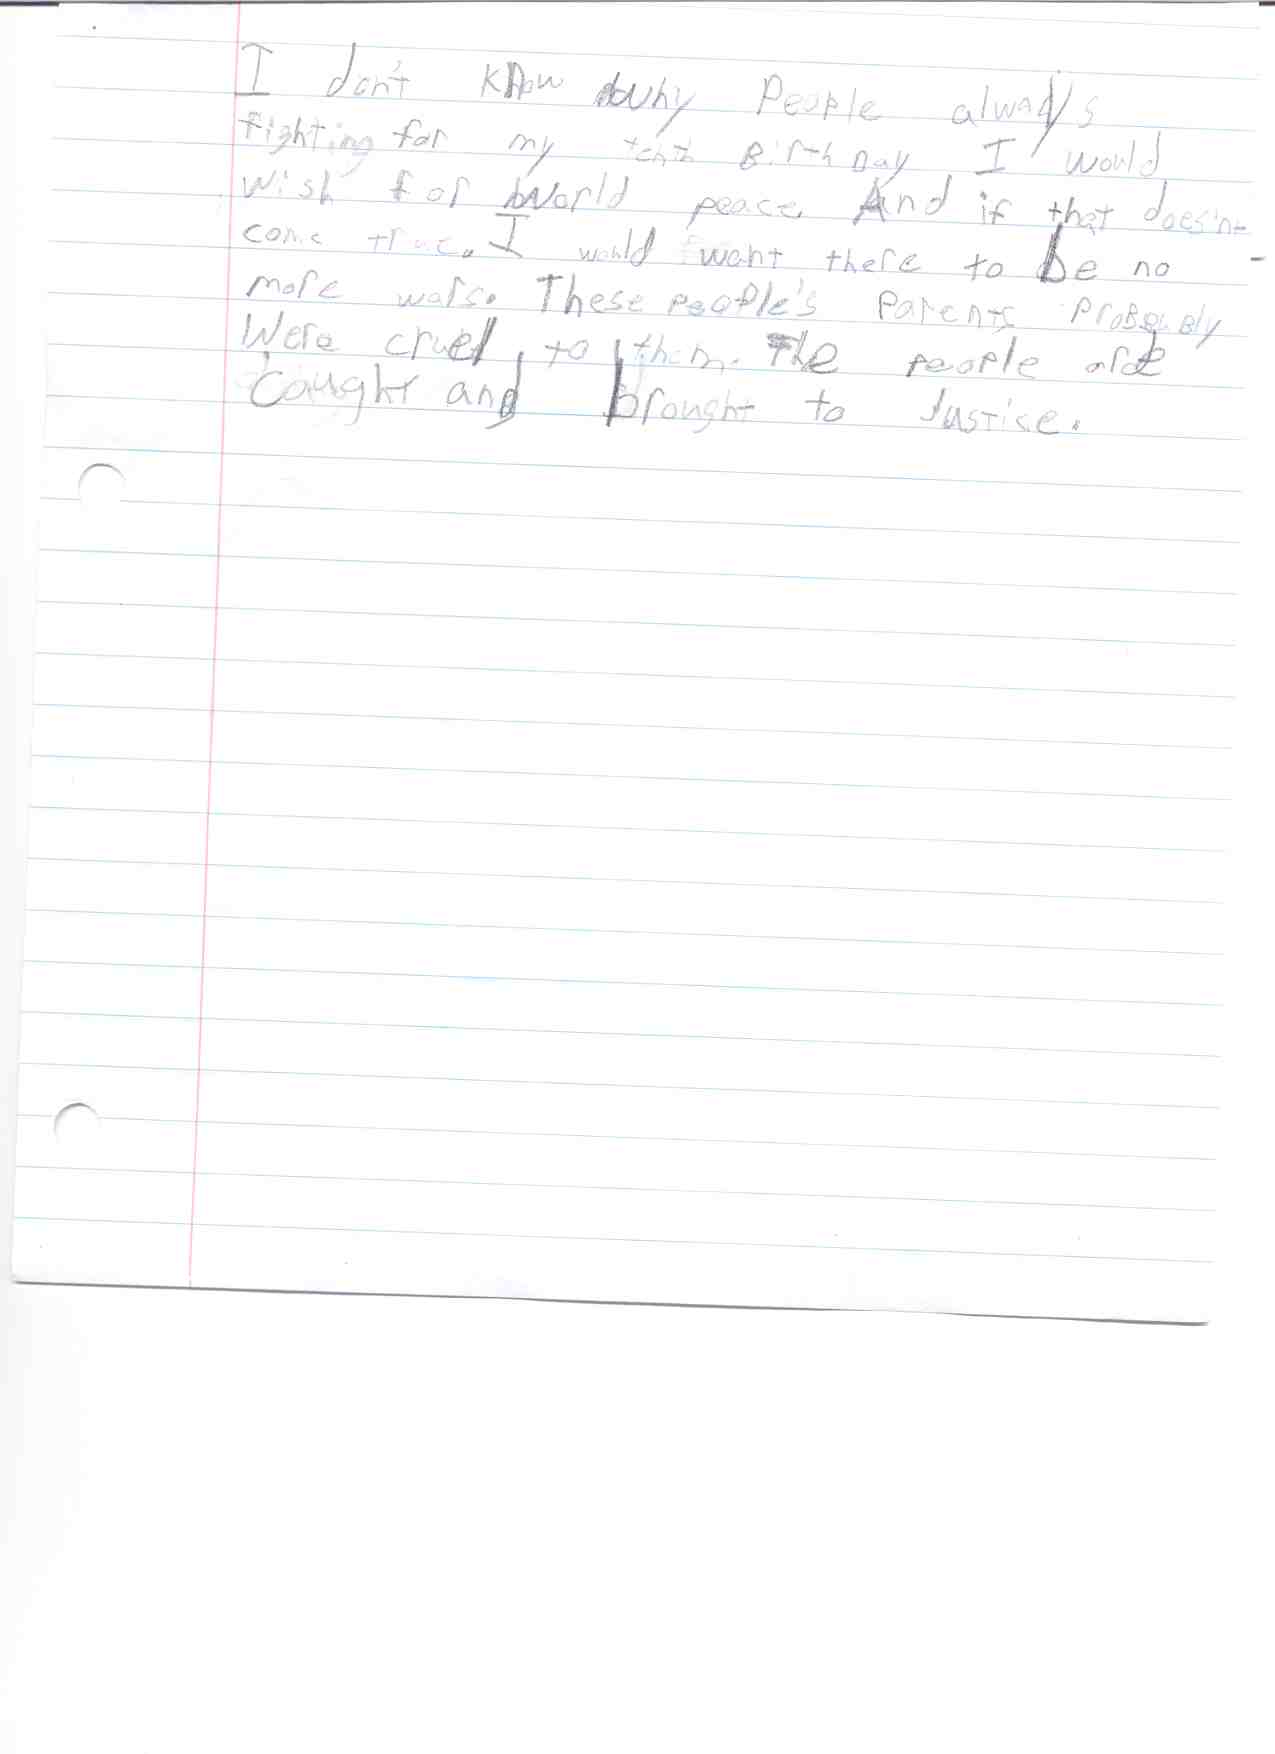 I don't know why People always
fighting for my tenth BirthDay I would
wish for world peace. And if that doesn't
come true. I would want there to be no
more wars. These people's Parents ProBaBly
Were cruel to them. The people are
caught and brought to Justice.